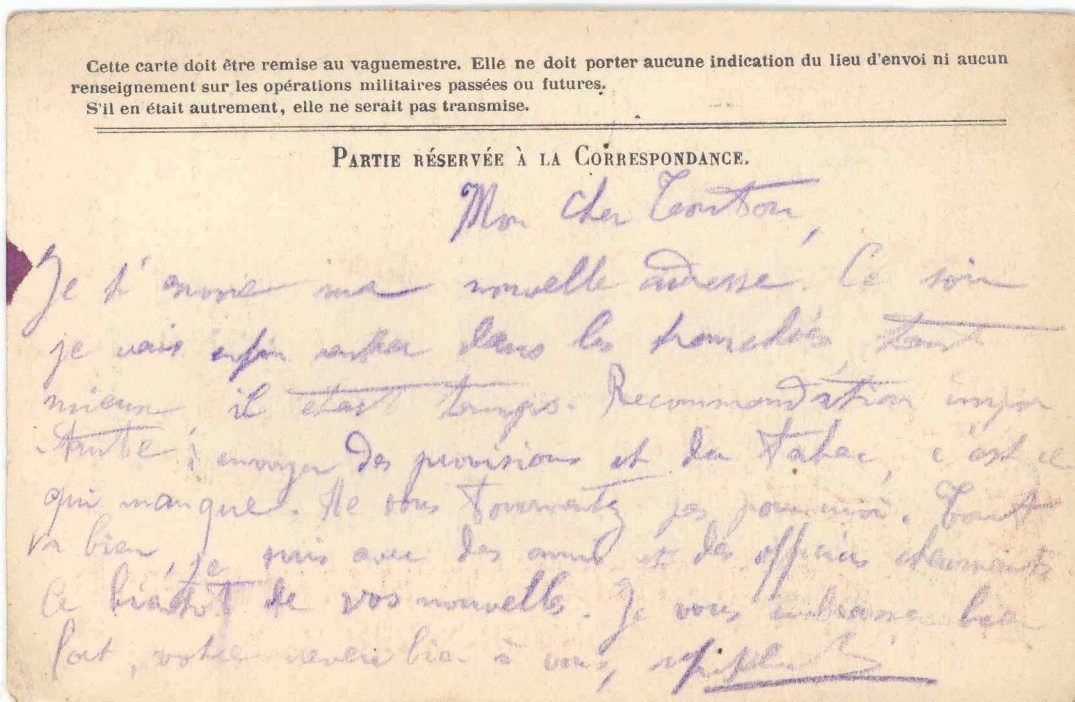 Cette carte doit être remise au vaguemestre. Elle ne doit porter aucune indication du lieu d'envoi ni aucun
renseignement sur les opérations militaires passées ou futures.
S'il en était autrement, elle ne serait pas transmise.
PARTIE RÉSERVÉE À LA CORRESPONDANCE.
Mon cher Tonton,
Je t'envoie ma nouvelle adresse. Ce soir
je vais enfin entrer dans les tranchées, tant
mieux, il était temps. Recommandation impor
tante : envoyer des provisions et du tabac, c'est ce
qui manque. Ne vous tourmentez pas pour moi. Tout
va bien, je suis avec des amis et des officiers charmants
A bientôt de vos nouvelles. Je vous embrasse bien
fort, votre neveu bien à vous,